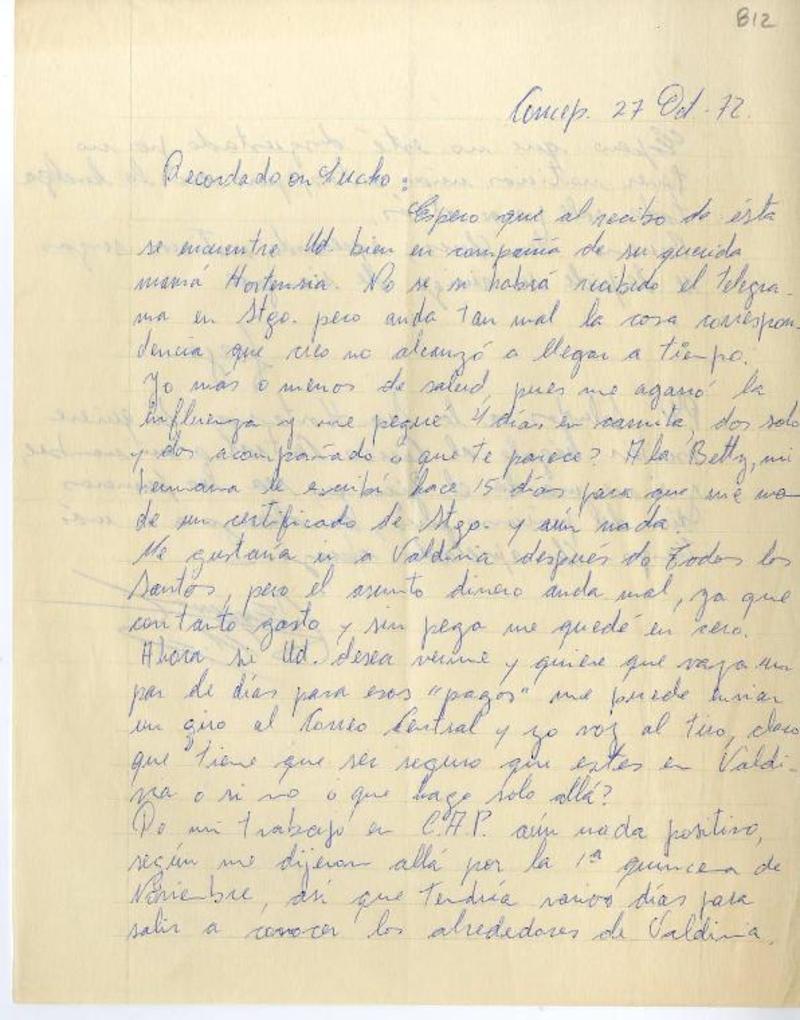 812
Concep. 27 Oct. 72.
Recordado on Lucho:
Espero que al recibo de ésta
se encuentre Ud. bien en compañía de su querida
mamá Hortensia. No se si habrá recibido el telegra-
ma en Stgo. pero anda tan mal la cosa correspon-
dencia que creo no alcanzó a llegar a tiempo.
Yo mas o menos de salud, pues me agarró la
influenza y me pegué 4 días en camita, dos solo
y dos acompañado o que te parece? A la Betty, mi
hermana le escribí hace 15 días para que me man
de un certificado de Stgo. y aún nada.
Me gustaría ir a Valdivia después de Todos los
Santos, pero el asunto dinero anda mal, ya que
con tanto gasto y sin pega me quedé en cero.
Ahora si Ud. desea verme y quiere que vaya un
par de días para esos "pagos" me puede enviar
un giro al Correo Central y yo voy al tiro, claro
que tiene que ser seguro que estes en Valdi-
via o si no o que hago solo allá?
De mi trabajo en C.A.P. aún nada positivo,
según me dijeron allá por la 1ª quincena de
Noviembre, así que tendría varios días para
salir a conocer los alrededores de Valdivia.